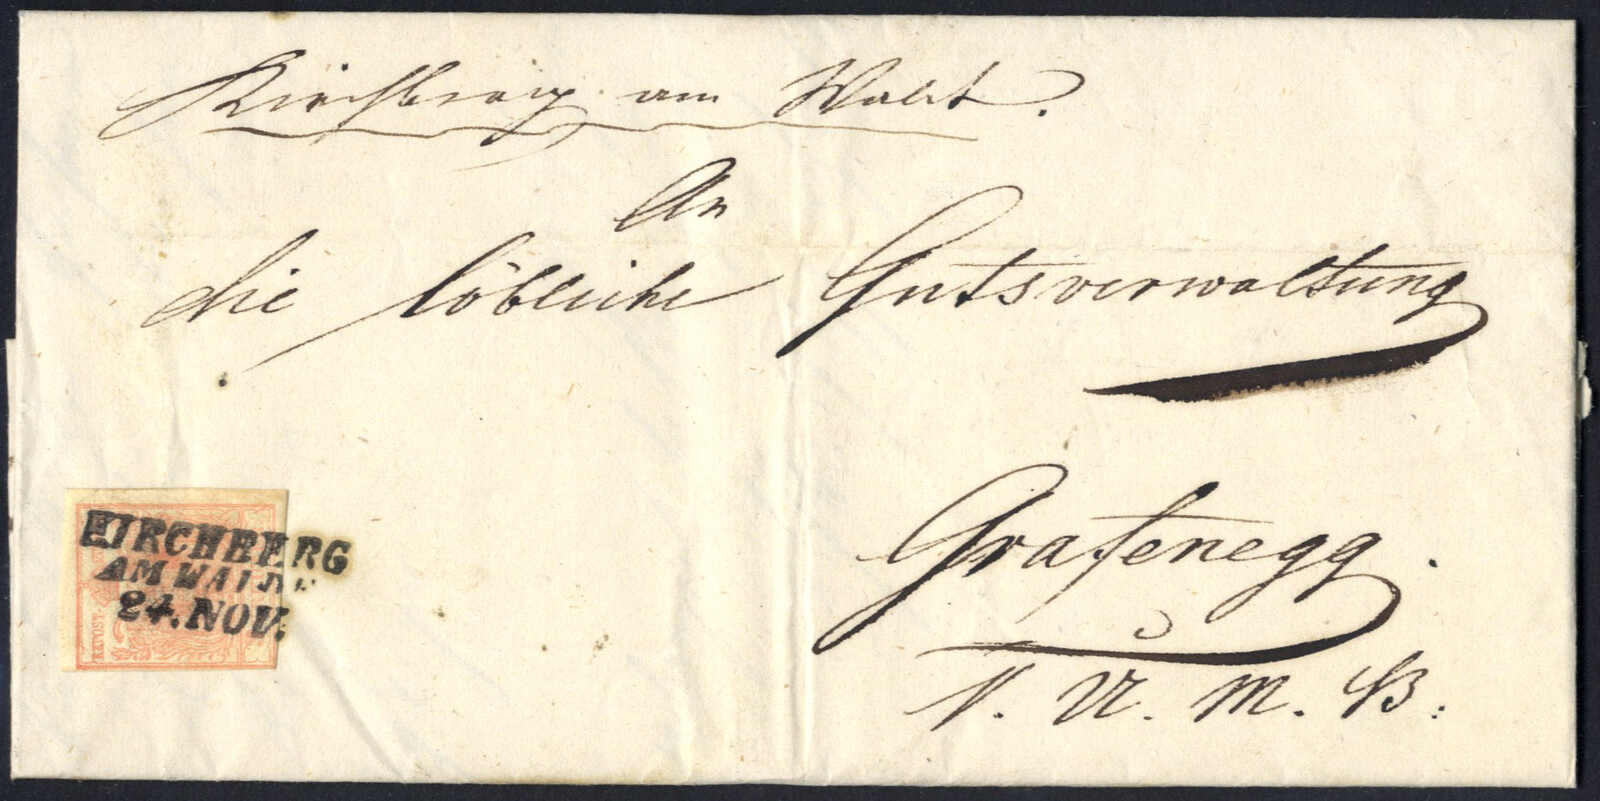 Kirchberg am Wald.
An
die löbliche Gutsverwaltung
Grafenegg.
V. U. M. B:
KIRCHBERG
AM WALDE
24. NOV.